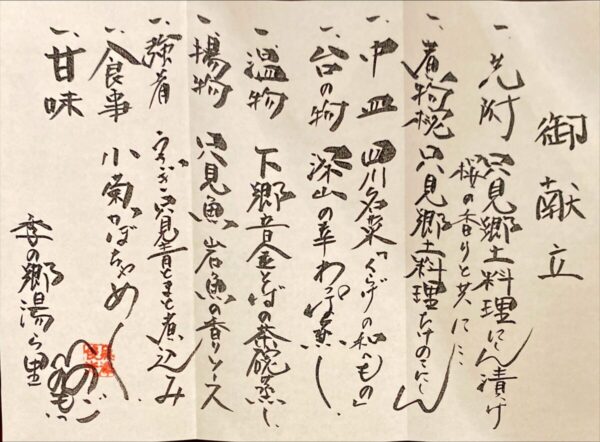 御献立
一、先附 只見郷土料理にしん漬け
桜の香りと共に…
一、煮物椀 只見郷土料理たけのこにしん
一、中皿 四川名菜「くらげの和へもの」
一、台の物 深山の幸わっぱ蒸し
一、温物 下郷音金そばの茶碗蒸し
一、揚物 只見魚 岩魚の香りソース
一、強肴 うなぎ 只見青とまと煮込み
一、食事 小菊かぼちゃめし
一、甘味
季の郷湯ら里